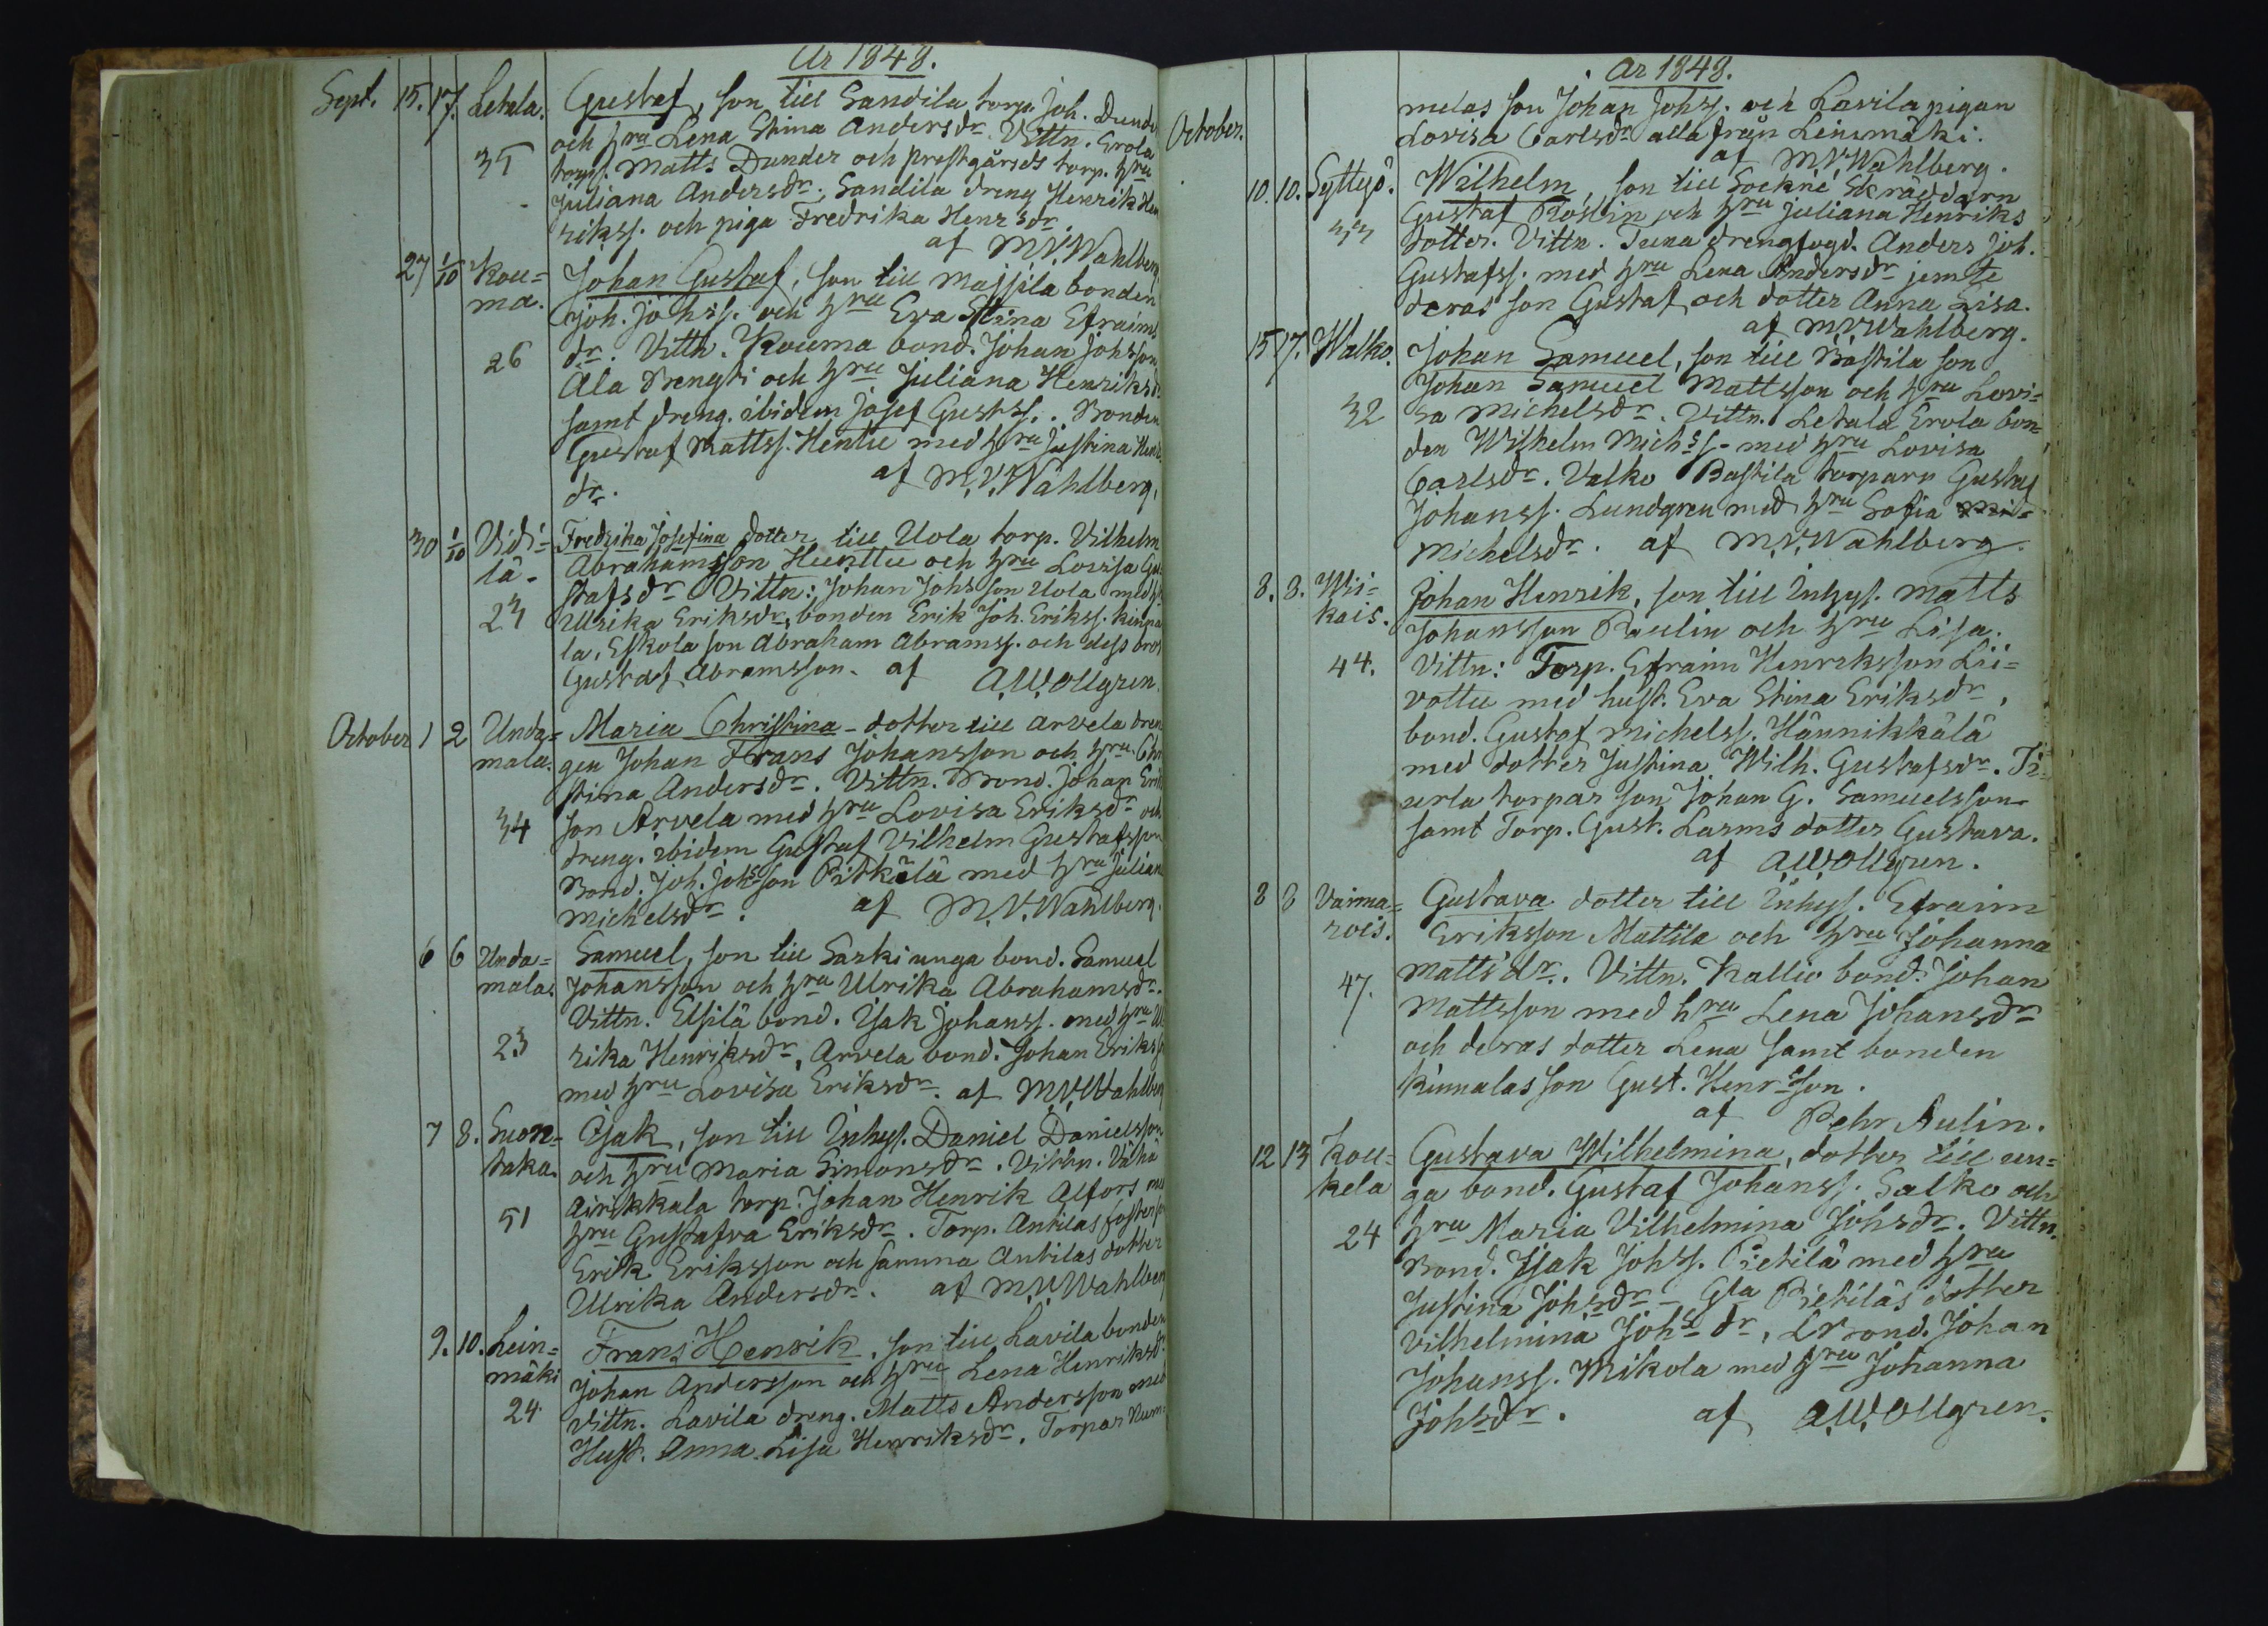 År 1848.
Sept. 15. 17. Letala. Gustaf, son till Sandila torp. Joh. Dunder
och hru Lena Stina Andersdr. Vittn. Erola
35 torps. Matts Dunder och prestgårds torp. hru
Juliana Andersdr, Sandila dreng Henrik Hen
rikss. och piga Fredrika Henrsdr.
af M.V. Wahlberg
27 1/10 Kou= Johan Gustaf, son till Majsila bonden
ma. Joh. Johss. och hru Eva Stina Efraims
26 dr. Vittn. Kouma bond. Johan Johsson
Ala Prengti och hru Juliana Henriksdr
samt dreng. ibidem Josef Gustss. Bonden
Gustaf Mattss. Hentu med hru Justina Henr
dr. af M.V. Wahlberg.
30 1/10 Vidi= Fredrika Josefina dotter till Uola torp. Vilhelm
lä. Abrahamsson Hunttu och hru Lovisa Gu
stafsdr Vittn: Johan Johsson Uola med h
23 Ulrika Eriksdr, bonden Erik Joh. Erikss. kinna
la, Eskola son Abraham Abramss. och dess bror
Gustaf Abramsson. af A.W. Ollgren.
October 1 2 Unda= Maria Christina - dotter till Arvela dren
mala. gen Johan Frans Johansson och hru Chri
stina Andersdr. Vittn. Bond. Johan Erik
34 son Arvela med hru Lovisa Eriksdr och
dreng. ibidem Gustaf Vilhelm Gustafsson
Bond. Joh. Johsson Pitkälä med hru Julian
Michelsdr. af M.V. Wahlberg.
6 6 Unda= Samuel, son till Sarki unga bond. Samuel
mala. Johansson och hru Ulrika Abrahamsdr.
Vittn. Elsilä bond. Isak Johanss. med hru Ul
23 rika Henriksdr, Arvela bond. Johan Erikss
med hru Lovisa Eriksdr. af M.V. Wahlberg
7 8. Suon= Isak, son till Inhys. Daniel Danielsson
taka. och hru Maria Simonsdr. Vittn. Vähä
Airikkala torp. Johan Henrik Alfors med
51 hru Gustafva Eriksdr. Torp. Antilas fosterson
Erik Eriksson och samma Antilas dotter
Ulrika Andersdr. af M.V. Wahlberg
9. 10. Lein= Frans Henrik, son till Lavila bonden
mäki Johan Andersson och hru Lena Henriksdr.
24. Vittn. Lavila dreng. Matts Andersson med
Hust. Anna Lisa Henriksdr, Torpar Num=
År 1848.
October. melas son Johan Johss. och Lavila pigan
Lovisa Carlsdr alla från Leinmäki.
af M.V. Wahlberg.
10. 10. Syttyö. Wilhelm, son till Sockne Skräddarn
Gustaf Roslin och hru Juliana Henriks
33 dotter. Vittn. Tuna drengfogd. Anders Joh.
Gustafss. med hru Lena Andersdr jemte
deras son Gustaf och dotter Anna Lisa.
af M.V. Wahlberg.
15 17. Walko. Johan Samuel, son till Bastila son
Johan Samuel Mattsson och hru Lovi=
32 sa Michelsdr. Vittn. Letala Erola bon=
den Wilhelm Michss. med hru Lovisa
Carlsdr. Valko Bastila torparn Gustaf
Johanss. Lundgren med hru Sofia
Michelsdr. af M.V. Wahlberg.
8. 8. Wii= Johan Henrik, son till Inhys. Matts
kais. Johansson Paulin och hru Lisa.
44. Vittn: Torp. Efraim Henriksson Lii=
vottu med hust. Eva Stina Eriksdr,
bond. Gustaf Michelss. Hännikkälä
med dotter Justina Wilh. Gustafsdr. Ti=
urla torpar son Johan G. Samuelsson
samt Torp. Gust. Larms dotter Gustava.
af A.W. Ollgren.
8 8 Varma= Gustava dotter till Inhys. Efraim
rois. Eriksson Mattila och hru Johanna
47. Mattsdr. Vittn. Kallio bond. Johan
Mattsson med hru Lena Johansdr
och deras dotter Lena samt bonden
Kinnalas son Gust. Henrsson.
af Pehr Aulin.
12 13 Kou= Gustava Wilhelmina, dotter till un=
kela ga bond. Gustaf Johanss. Salko och
24 hru Maria Vilhelmina Johsdr. Vittn.
Bond. Isak Johss. Pietilä med hru
Justina Johsdr - Gla Pietilas dotter
Vilhelmina Johsdr, bond. Johan
Johanss. Mikola med hru Johanna
Johsdr. af A.W. Ollgren.